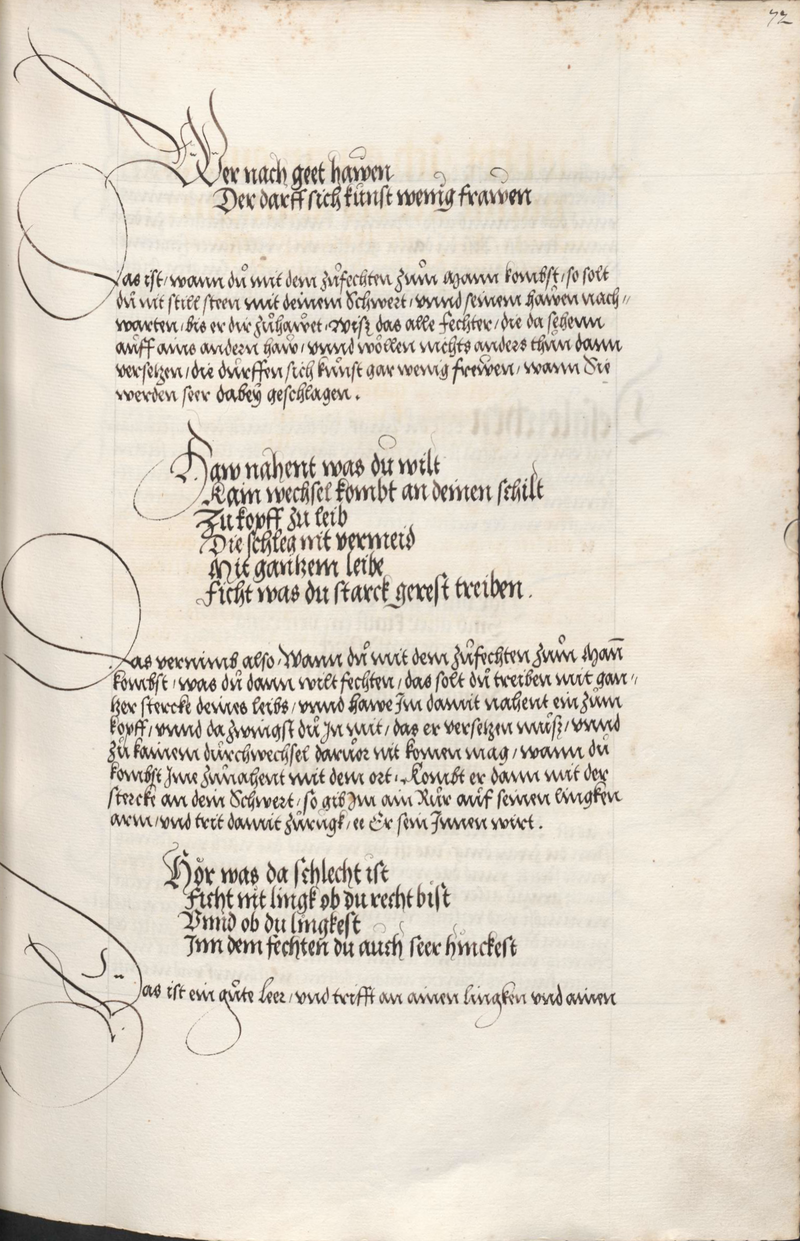 72
Wer nach geet hawen
Der darff sich kunst wenig frawen
Das ist / wann du mit dem zůfechten zům Mann kombst / so solt
du nit still steen mit deinem Schwert / vnnd seinem hawen nach„
warten / bis er dir zůhawet / Wisz das alle fechter / die da sehenn
auff ains andern haw / vnnd wöllen nichts anders thůn dann
versetzen / die dürffen sich kunst gar wenig frewen / wann Sie
werden seer dabey geschlagen .
Haw nahent was du wilt
Kain wechsel kombt an deinen schilt
Zu kopff zu leib
Die schleg nit vermeid
Mit gantzem leibe
Ficht was du starck gerest treiben .
Das vernimb also / Wann dů mit dem zůfechten zům Man̄
kombst / was dů dann wilt fechten / das solt dů treiben mit gan„
tzer stercke deines leibs / vnnd hawe Im damit nahent ein zům
kopff / vnnd da zwingst dů In mit / das er versetzen můsz / vnnd
zů kainem dürchwechsel darůor nit komen mag / wann du
kombst Ime zůnahent mit dem ort . Kombt er dann mit der
stercke an dein Schwert / so gib Im ain Růr auf seinen lingken
arm / vnd trit damit zůrugk / ee Er sein Innen wirt .
Hör was da schlecht ist
Ficht nit lingk ob du recht bist
Vnnd ob du lingkest
Inn dem fechten du auch seer hinckest
Das ist ein gůte leer / vnd trifft an ainen lingken vnd ainen